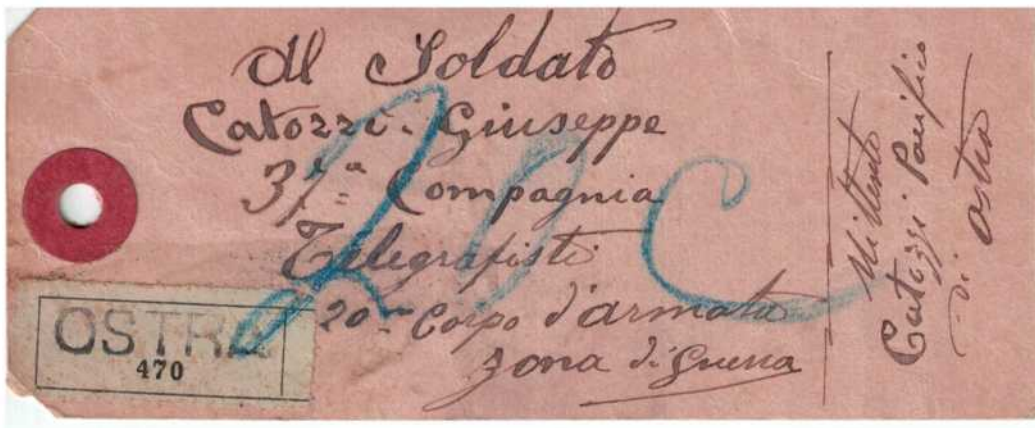 Al Soldato
Catozzi Giuseppe
37ª Compagnia
Telegrafisti
20º Corpo d'armata
zona di guerra
20 C
OSTRA
470
Mittente
Catozzi Pacifico
di Ostra